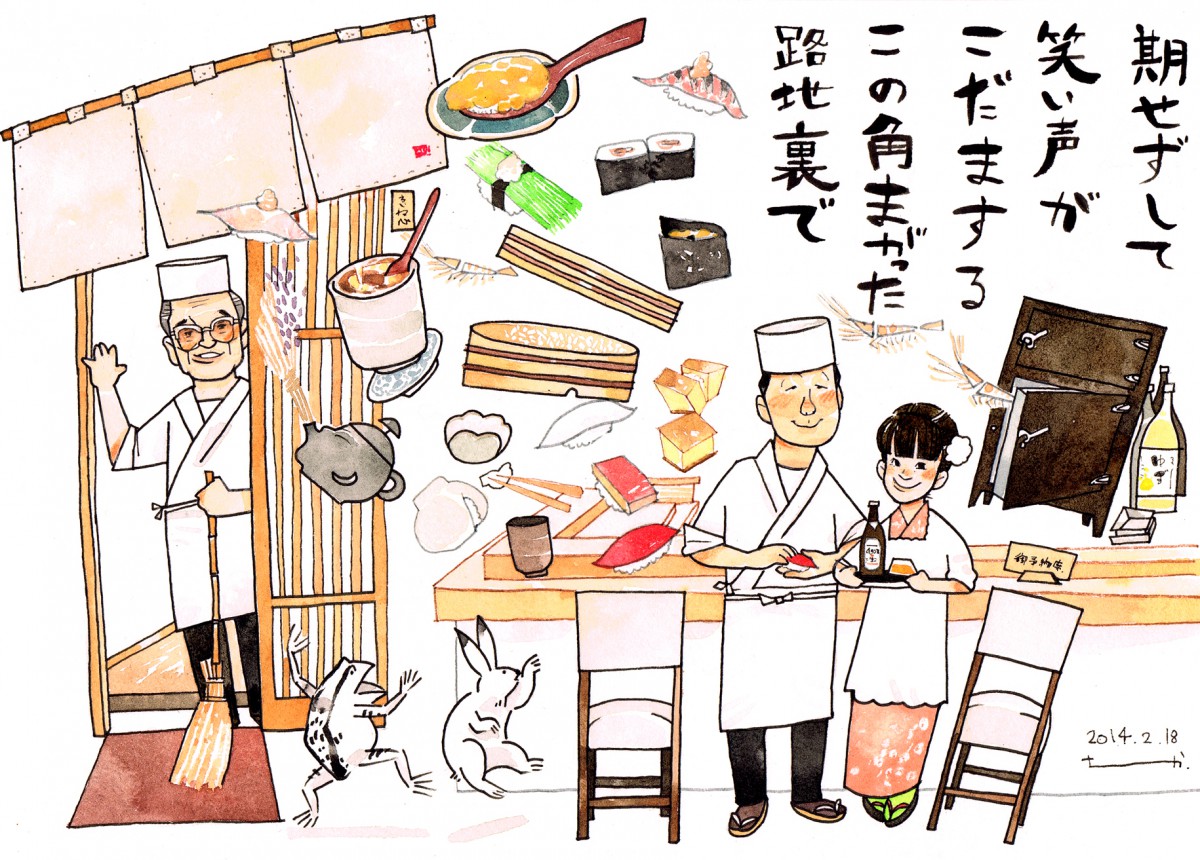 期せずして
笑い声が
こだまする
この角まがった
路地裏で
きねや
ゆず
2014.2.18